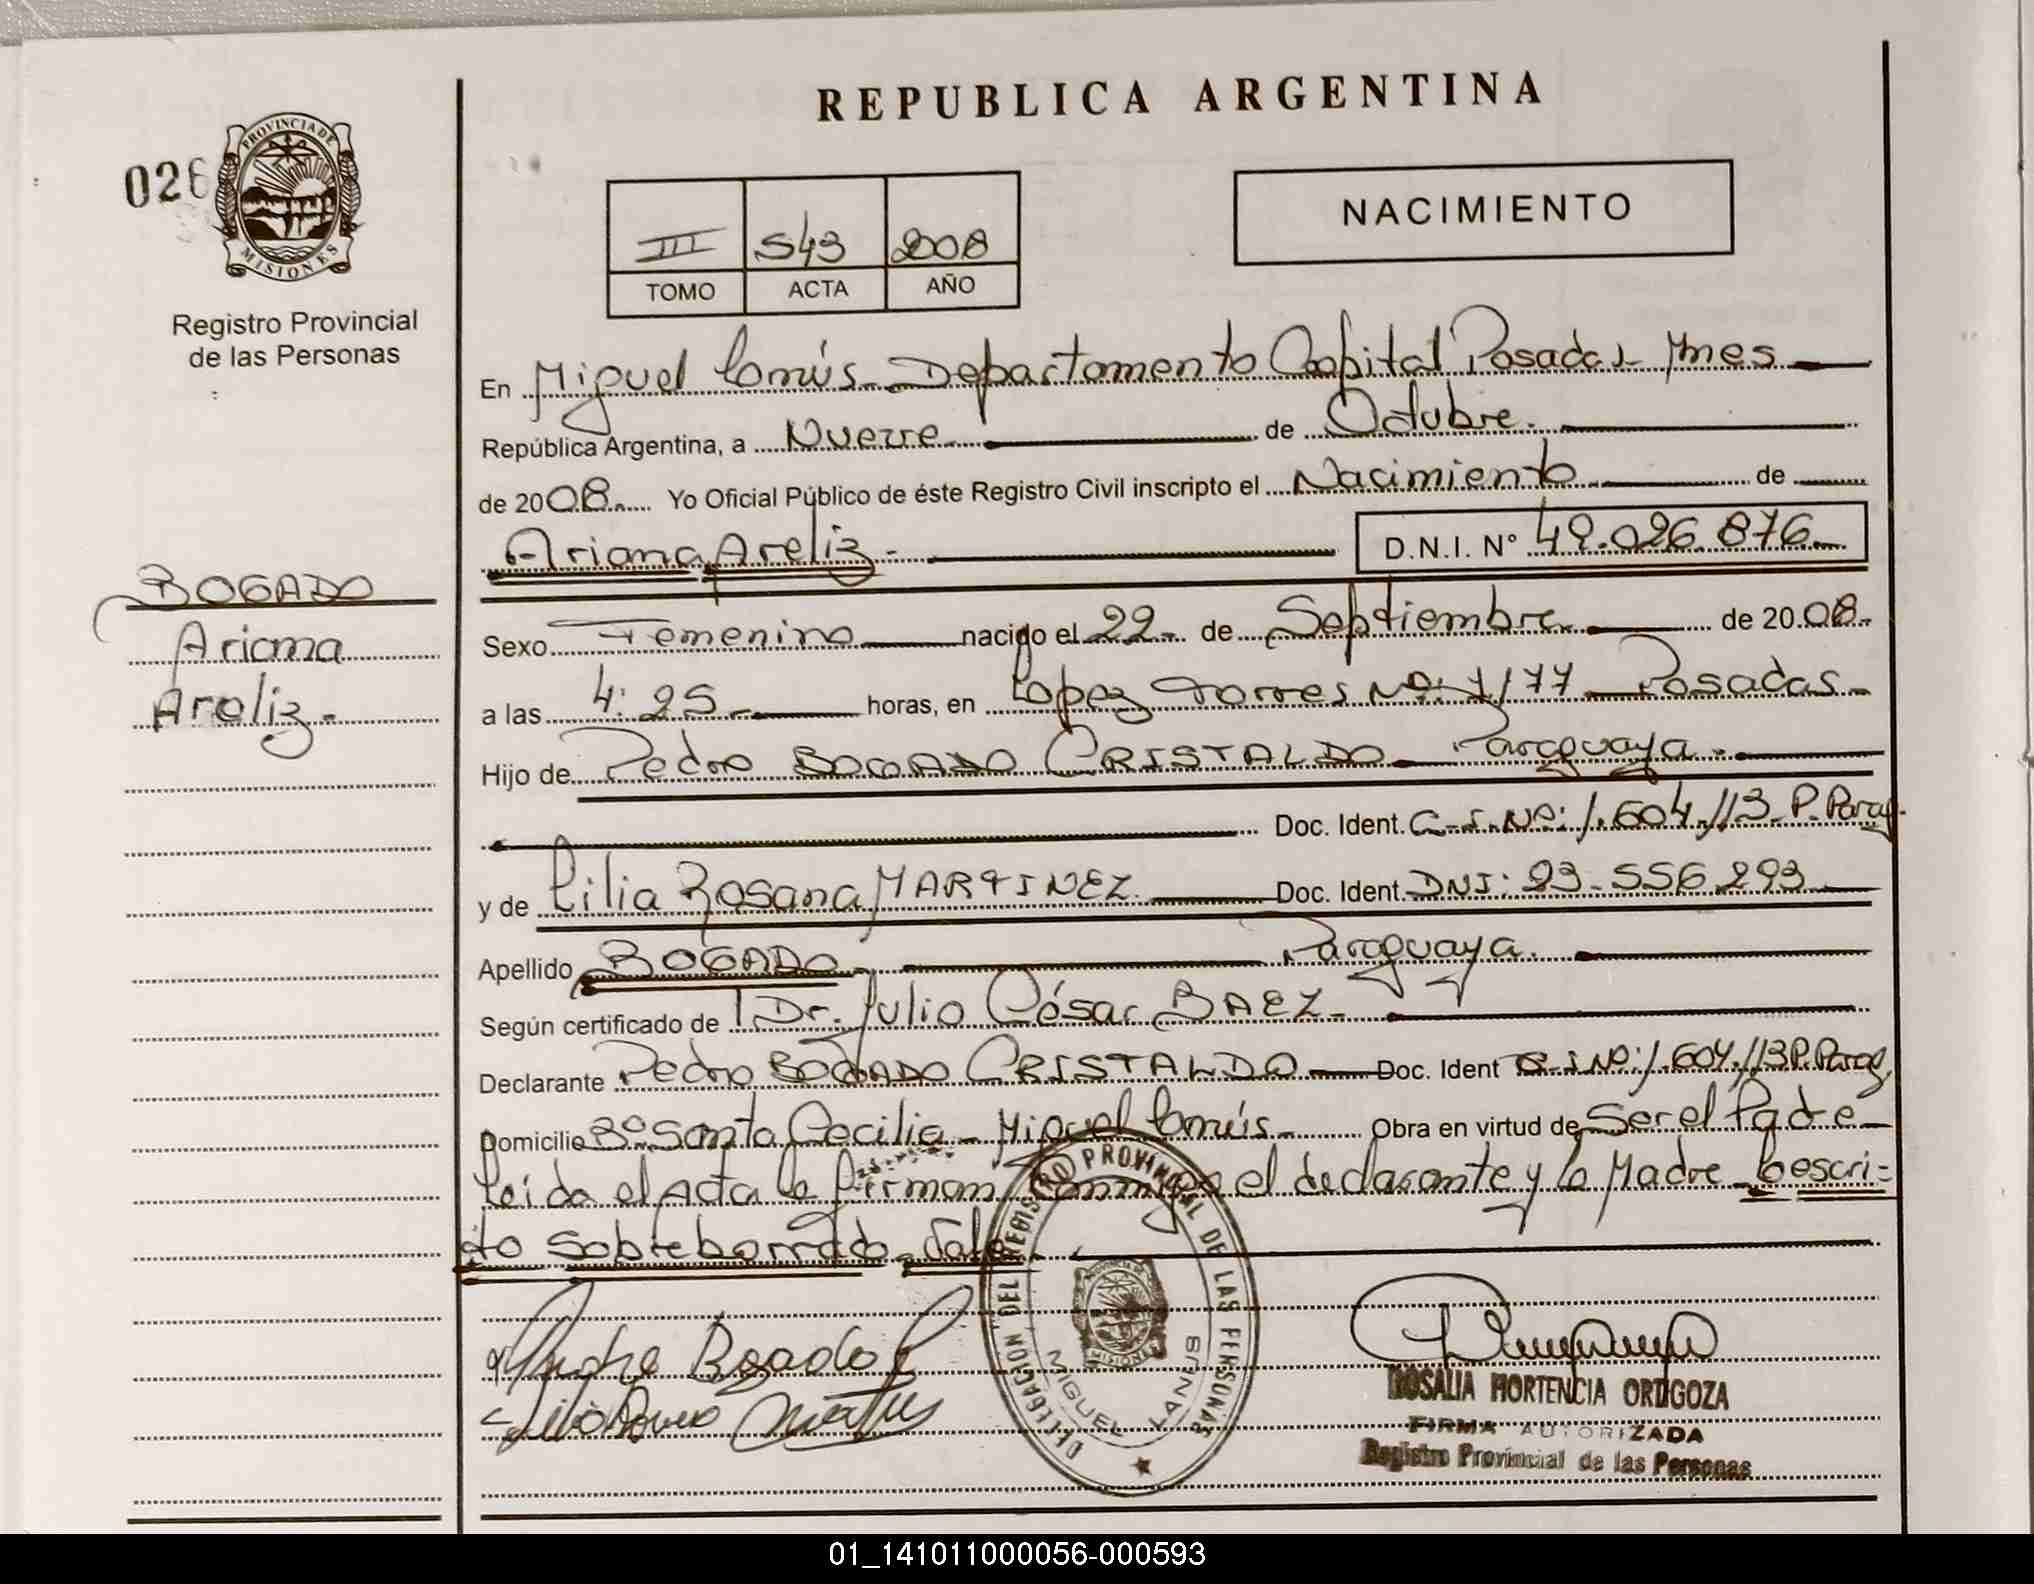 REPUBLICA ARGENTINA
026
PROVINCIA DE MISIONES
Registro Provincial
de las Personas
III 543 2008
TOMO ACTA AÑO
NACIMIENTO
En Miguel Lanús Departamento Capital Posadas Mnes
República Argentina, a Nueve de Octubre
de 2008 Yo Oficial Público de éste Registro Civil inscripto el Nacimiento de
Ariana Areliz.- D.N.I. N° 49.026.876
BOGADO
Ariana
Areliz.-
Sexo Femenino nacido el 22 de Septiembre de 2008.
a las 4:25 horas, en Lopez Torres Nº: 1177 Posadas.
Hijo de Pedro BOGADO CRISTALDO Paraguaya.
Doc. Ident. C.I.Nº: 1.604.113 P. Parag.
y de Lilia Rosana MARTINEZ Doc. Ident. DNI: 93.556.293
Apellido BOGADO Paraguaya.
Según certificado de Dr. Julio César BAEZ
Declarante Pedro BOGADO CRISTALDO Doc. Ident C.I.Nº: 1.604.113 P. Parag.
Domicilio Bº Santa Cecilia - Miguel Lanús Obra en virtud de Ser el Padre
Leída el Acta la firman conmigo el declarante y la Madre. Lo escri=
to sobreborrado Vale
DELEGACION DEL REGISTRO PROVINCIAL DE LAS PERSONAS
MISIONES
MIGUEL LANUS
ROSALIA HORTENCIA ORTIGOZA
FIRMA AUTORIZADA
Registro Provincial de las Personas
01_141011000056-000593